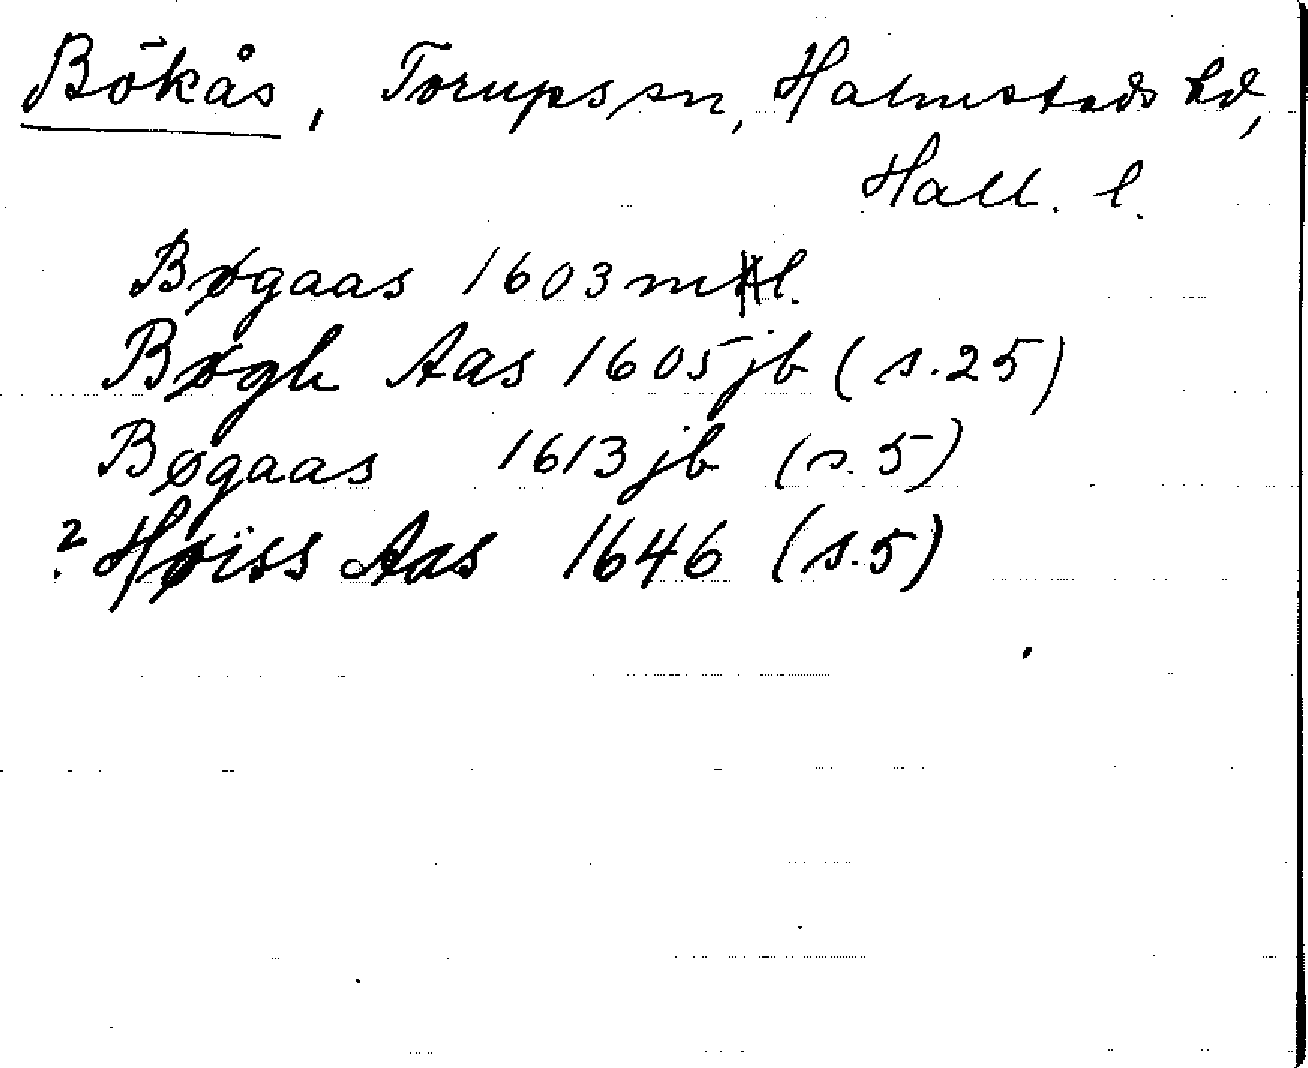 Bökås, Torups sn, Halmstads hd,
Hall. l.
Bøgaas 1603 ml.
Bøgh Aas 1605 jb (s. 25)
Bøgaas 1613 jb (s. 5)
? Høiss Aas 1646 (s. 5)